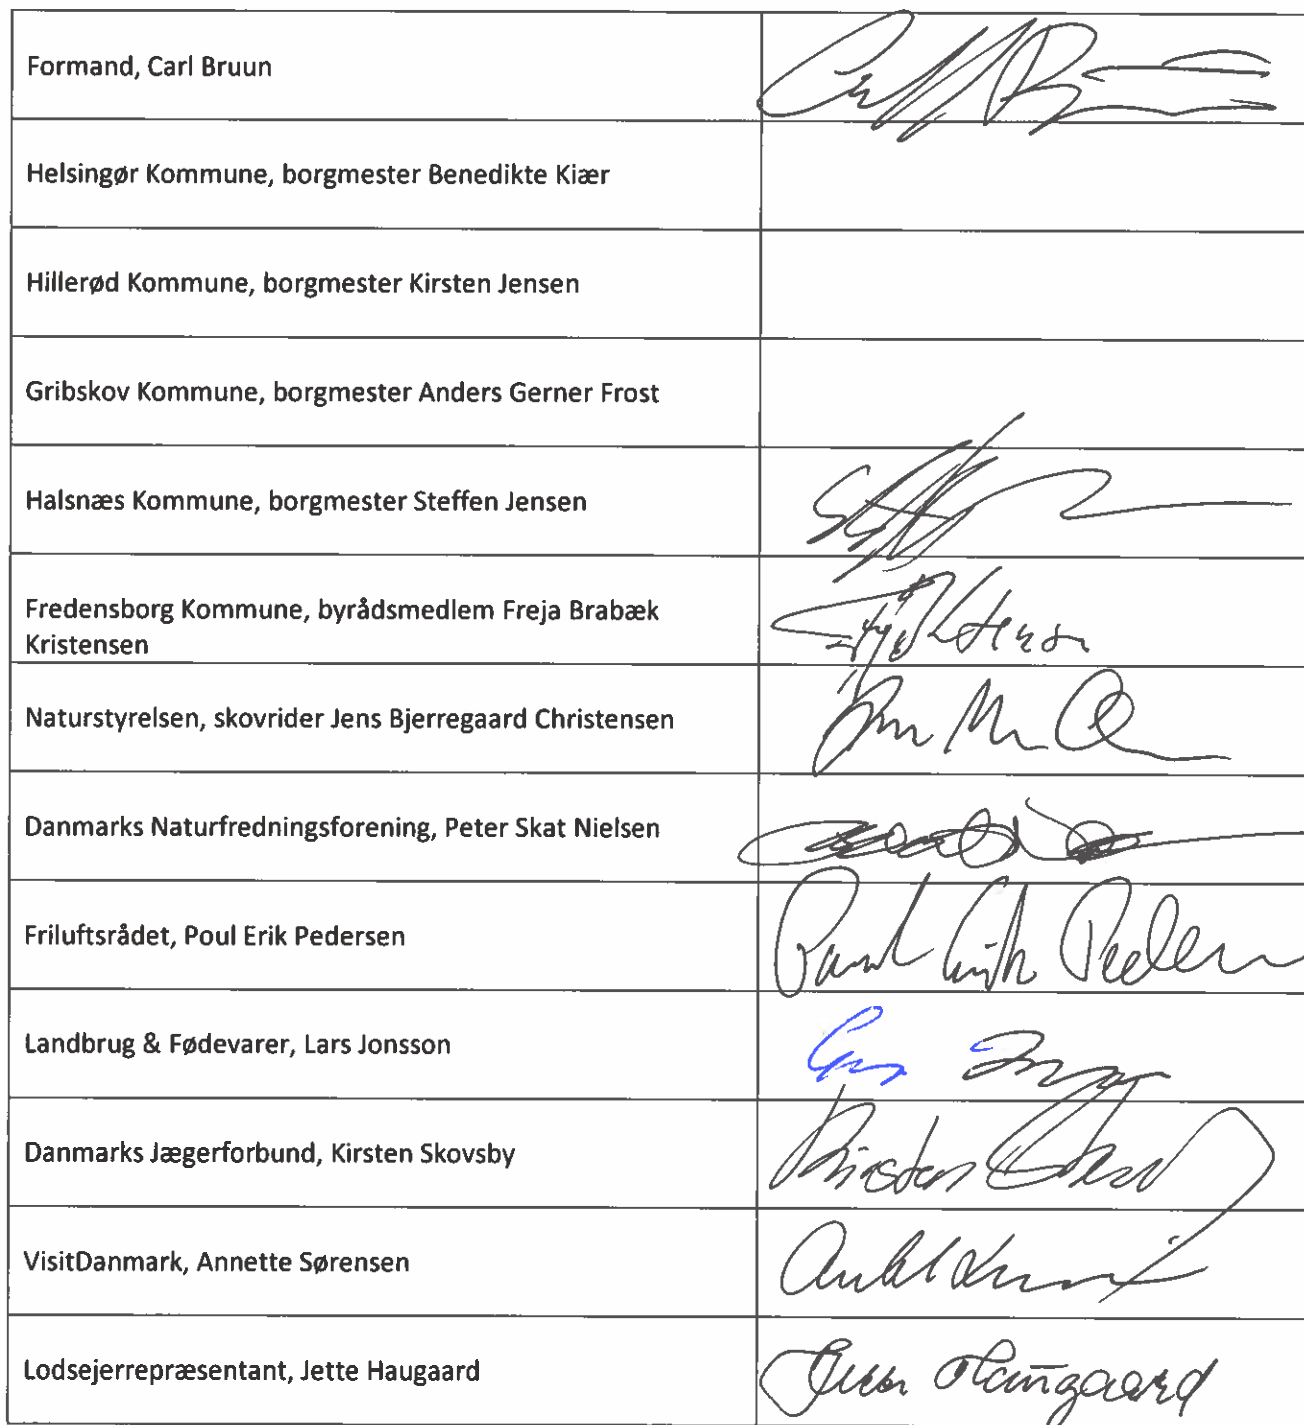 Formand, Carl Bruun
Helsingør Kommune, borgmester Benedikte Kiær
Hillerød Kommune, borgmester Kirsten Jensen
Gribskov Kommune, borgmester Anders Gerner Frost
Halsnæs Kommune, borgmester Steffen Jensen
Fredensborg Kommune, byrådsmedlem Freja Brabæk
Kristensen
Naturstyrelsen, skovrider Jens Bjerregaard Christensen
Danmarks Naturfredningsforening, Peter Skat Nielsen
Friluftsrådet, Poul Erik Pedersen
Poul Erik Pedersen
Landbrug & Fødevarer, Lars Jonsson
Danmarks Jægerforbund, Kirsten Skovsby
Kirsten
VisitDanmark, Annette Sørensen
Lodsejerrepræsentant, Jette Haugaard
Haugaard